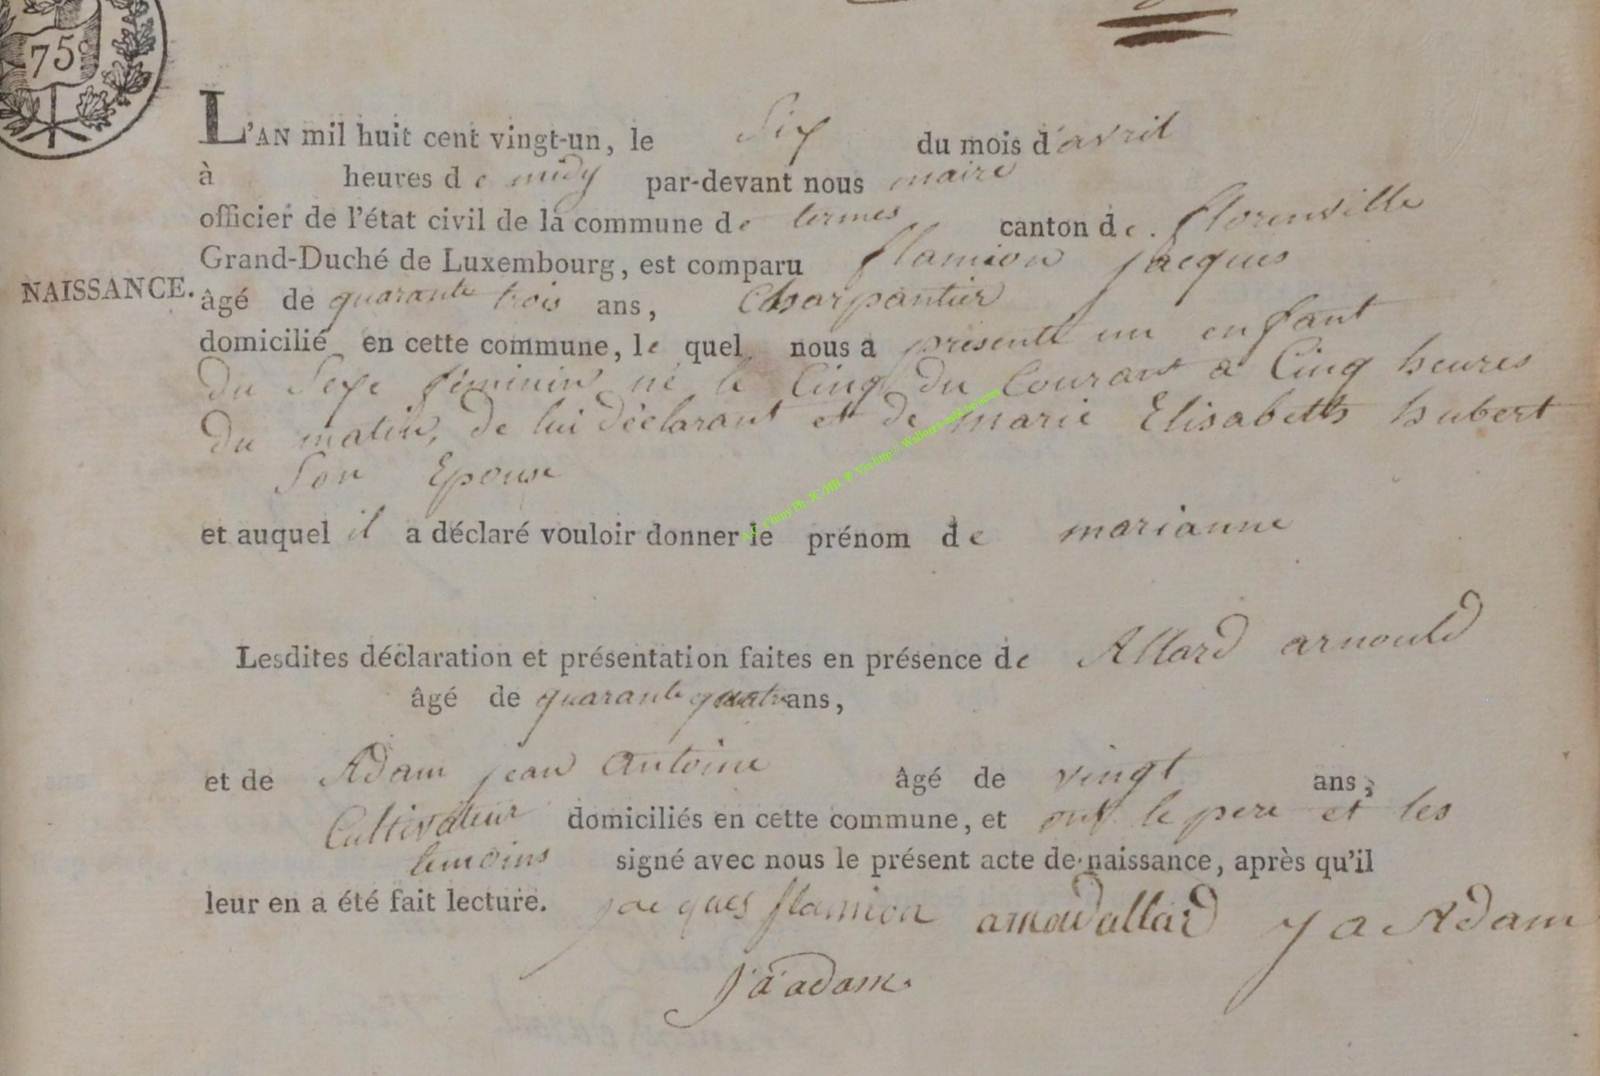 75c
L'AN mil huit cent vingt-un, le Six du mois d'avril
à heures de midy par-devant nous maire
officier de l'état civil de la commune de termes canton de florenville
Grand-Duché de Luxembourg, est comparu flamion jacques
NAISSANCE.
âgé de quarante trois ans, Charpantier
domicilié en cette commune, le quel nous a présenté un enfant
du Sexe féminin né le Cinq du Courant a Cinq heures
du matin, de lui déclarant et de marie Elisabeth hubert
Son Epouse
et auquel il a déclaré vouloir donner le prénom de marianne
Lesdites déclaration et présentation faites en présence de Allard arnould
âgé de quarante quatre ans,
et de Adam jean antoine âgé de vingt ans,
Cultivateur domiciliés en cette commune, et ont le pere et les
temoins signé avec nous le présent acte de naissance, après qu'il
leur en a été fait lecture. jacques flamion arnoud allard J a Adam
J a adam.